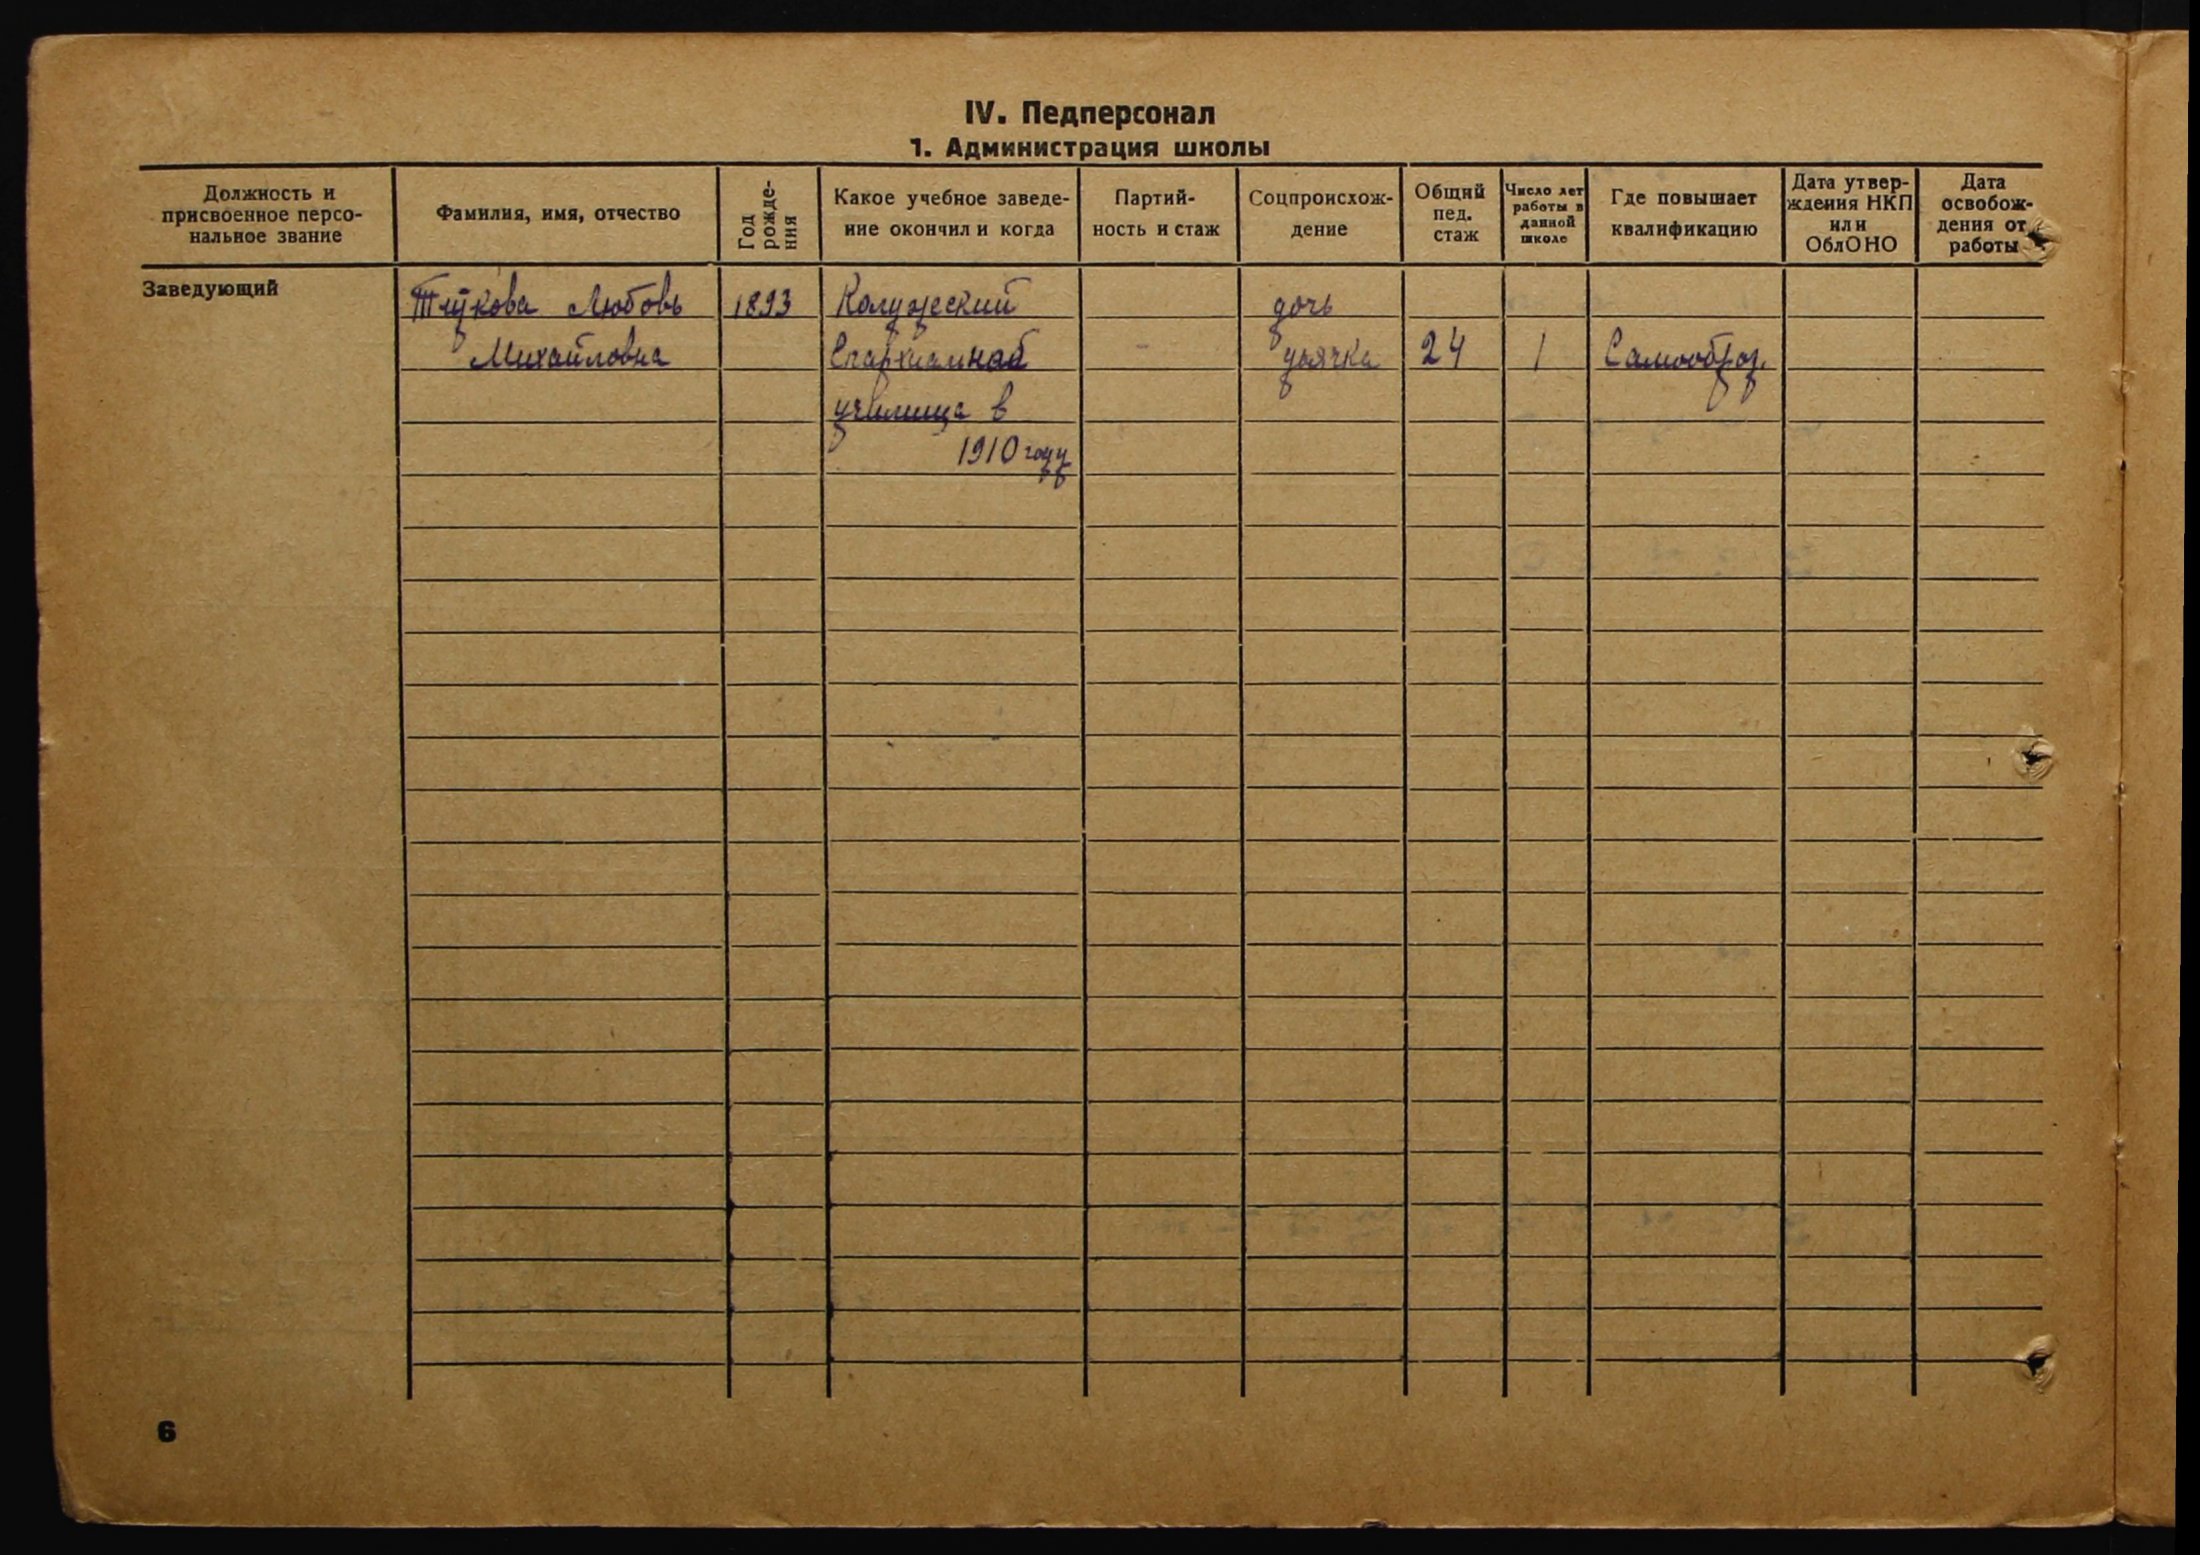 IV. Педперсонал
1. Администрация школы
Должность и
присвоенное персо-
нальное звание
Фамилия, имя, отчество
Год
рожде-
ния
Какое учебное заведе-
ние окончил и когда
Партий-
ность и стаж
Соцпроисхож-
дение
Общий
пед.
стаж
Число лет
работы в
данной
школе
Где повышает
квалификацию
Дата утвер-
ждения НКП
или
ОблОНО
Дата
освобож-
дения от
работы
Заведующий
Любовь 1893 Калужский дочь
Михайловна - дьячка 24 1 Самообраз.
училища в
1910 году
6